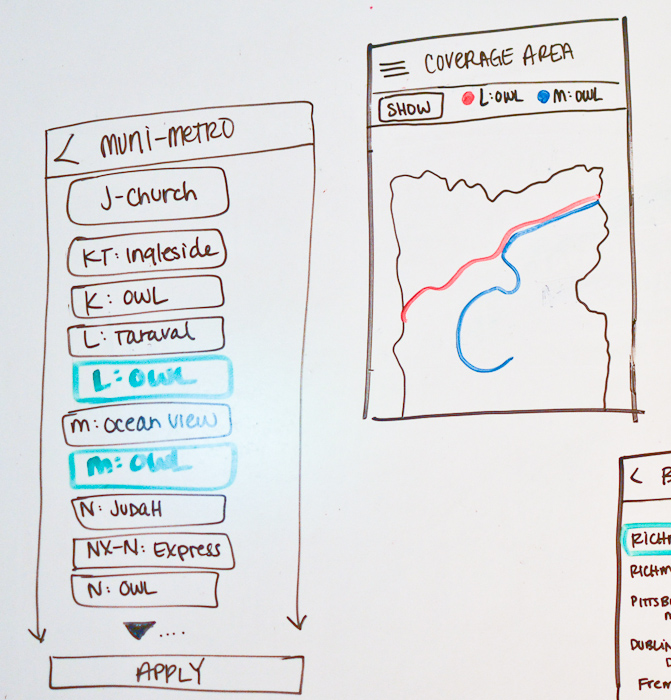 < MUNI-METRO
J-CHURCH
KT: INGLESIDE
K: OWL
L: TARAVAL
L: OWL
M: OCEAN VIEW
M: OWL
N: JUDAH
NX-N: EXPRESS
N: OWL
....
APPLY
COVERAGE AREA
SHOW L:OWL M:OWL
< B
RICHM
RICHM
PITTSB
DUBLIN
D
FREM